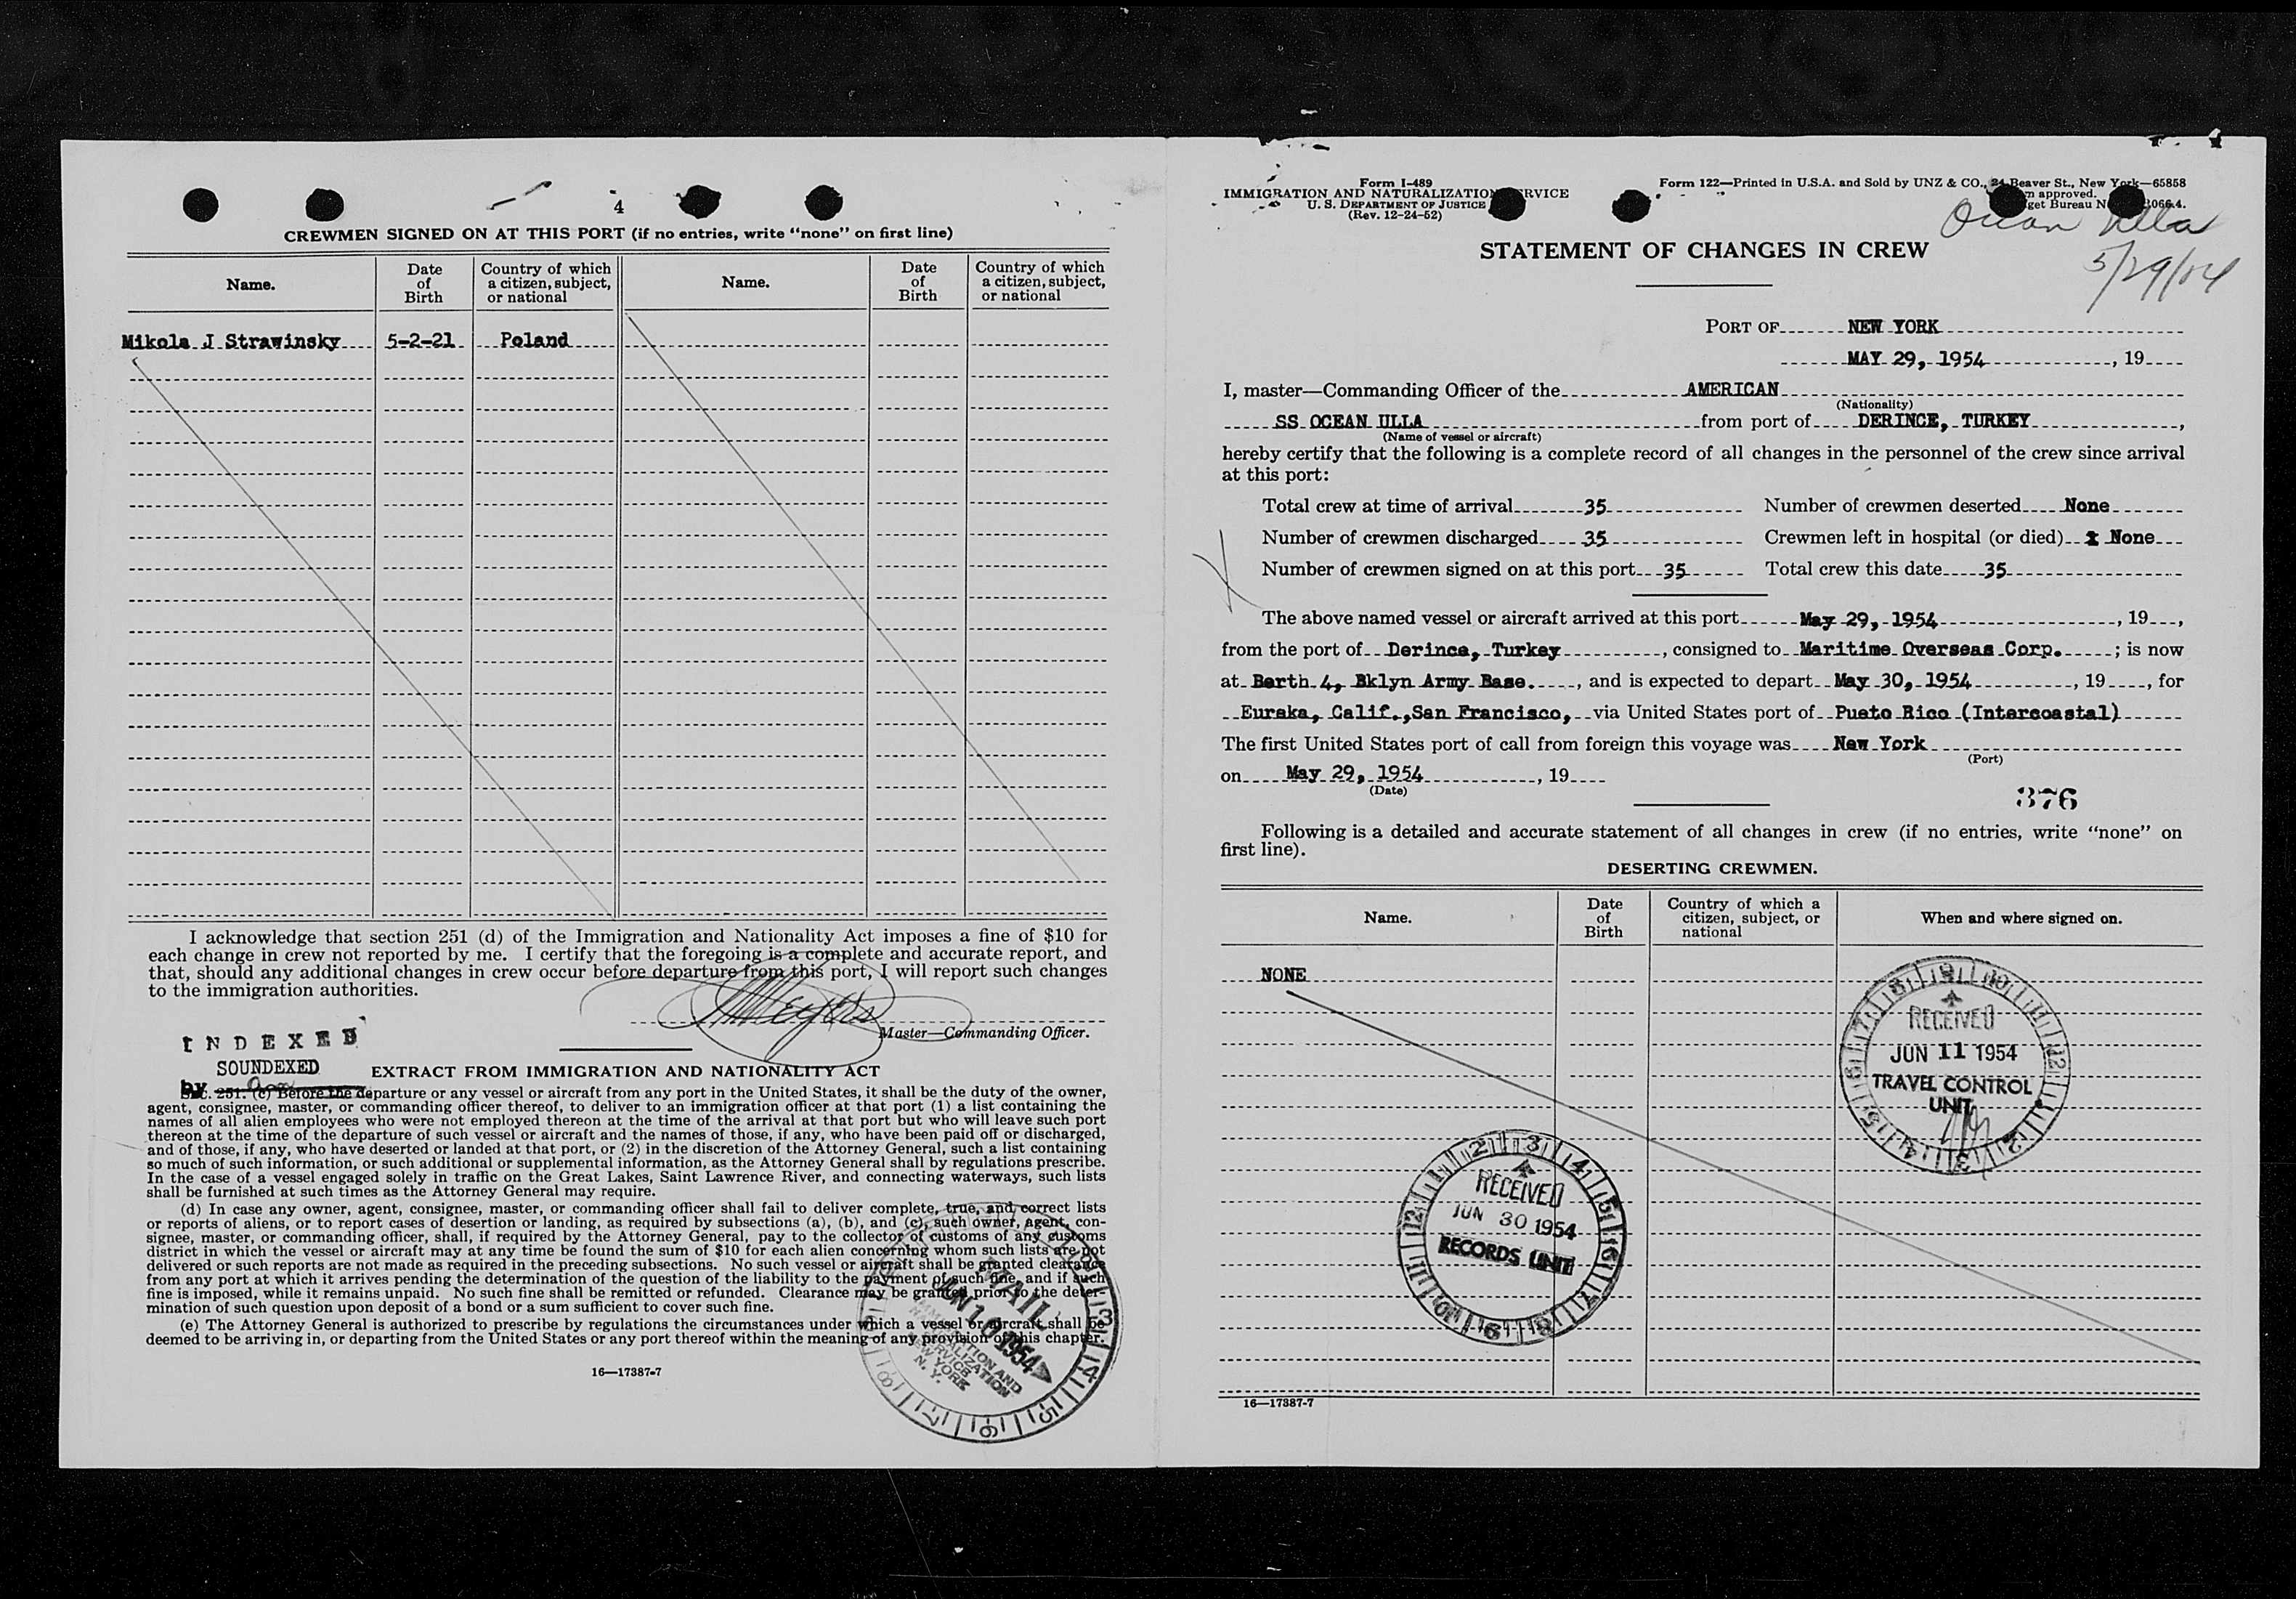 4
CREWMEN SIGNED ON AT THIS PORT (if no entries, write “none” on first line)
Name. Date of Birth Country of which a citizen, subject, or national Name. Date of Birth Country of which a citizen, subject, or national
Mikola J Strawinsky 5-2-21 Poland
I acknowledge that section 251 (d) of the Immigration and Nationality Act imposes a fine of $10 for
each change in crew not reported by me. I certify that the foregoing is a complete and accurate report, and
that, should any additional changes in crew occur before departure from this port, I will report such changes
to the immigration authorities.
Master—Commanding Officer.
INDEXED
SOUNDEXED
by
EXTRACT FROM IMMIGRATION AND NATIONALITY ACT
Sec. 251. (c) Before the departure or any vessel or aircraft from any port in the United States, it shall be the duty of the owner,
agent, consignee, master, or commanding officer thereof, to deliver to an immigration officer at that port (1) a list containing the
names of all alien employees who were not employed thereon at the time of the arrival at that port but who will leave such port
thereon at the time of the departure of such vessel or aircraft and the names of those, if any, who have been paid off or discharged,
and of those, if any, who have deserted or landed at that port, or (2) in the discretion of the Attorney General, such a list containing
so much of such information, or such additional or supplemental information, as the Attorney General shall by regulations prescribe.
In the case of a vessel engaged solely in traffic on the Great Lakes, Saint Lawrence River, and connecting waterways, such lists
shall be furnished at such times as the Attorney General may require.
(d) In case any owner, agent, consignee, master, or commanding officer shall fail to deliver complete, true, and correct lists
or reports of aliens, or to report cases of desertion or landing, as required by subsections (a), (b), and (c), such owner, agent, con-
signee, master, or commanding officer, shall, if required by the Attorney General, pay to the collector of customs of any customs
district in which the vessel or aircraft may at any time be found the sum of $10 for each alien concerning whom such lists are not
delivered or such reports are not made as required in the preceding subsections. No such vessel or aircraft shall be granted clearance
from any port at which it arrives pending the determination of the question of the liability to the payment of such fine, and if such
fine is imposed, while it remains unpaid. No such fine shall be remitted or refunded. Clearance may be granted prior to the deter-
mination of such question upon deposit of a bond or a sum sufficient to cover such fine.
(e) The Attorney General is authorized to prescribe by regulations the circumstances under which a vessel or aircraft shall be
deemed to be arriving in, or departing from the United States or any port thereof within the meaning of any provision of this chapter.
MAIL
JUN 10 1954
IMMIGRATION AND
NATURALIZATION
SERVICE
NEW YORK
N. Y.
16—17387-7
Form I-489
IMMIGRATION AND NATURALIZATION SERVICE
U. S. DEPARTMENT OF JUSTICE
(Rev. 12-24-52)
Form 122—Printed in U.S.A. and Sold by UNZ & CO., 24 Beaver St., New York—65858
approved.
Ocean Ulla
5/29/54
STATEMENT OF CHANGES IN CREW
PORT OF NEW YORK
MAY 29, 1954, 19
I, master—Commanding Officer of the AMERICAN
(Nationality)
SS OCEAN ULLA from port of DERINCE, TURKEY,
(Name of vessel or aircraft)
hereby certify that the following is a complete record of all changes in the personnel of the crew since arrival
at this port:
Total crew at time of arrival 35 Number of crewmen deserted None
Number of crewmen discharged 35 Crewmen left in hospital (or died) None
Number of crewmen signed on at this port 35 Total crew this date 35
The above named vessel or aircraft arrived at this port May 29, 1954, 19,
from the port of Derince, Turkey, consigned to Maritime Overseas Corp.; is now
at Berth 4, Bklyn Army Base., and is expected to depart May 30, 1954, 19, for
Eureka, Calif.,San Francisco, via United States port of Pueto Rico (Intercoastal)
The first United States port of call from foreign this voyage was New York
(Port)
on May 29, 1954, 19
(Date)
376
Following is a detailed and accurate statement of all changes in crew (if no entries, write “none” on
first line).
DESERTING CREWMEN.
Name. Date of Birth Country of which a citizen, subject, or national When and where signed on.
NONE
RECEIVED
JUN 11 1954
TRAVEL CONTROL
UNIT
RECEIVED
JUN 30 1954
RECORDS UNIT
16—17387-7